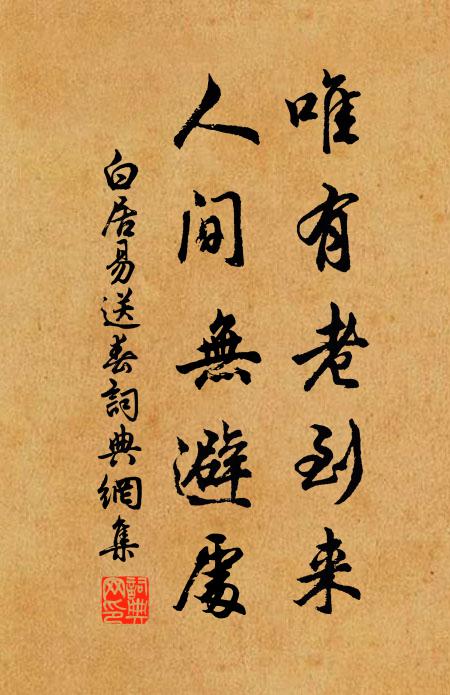 唯有老到来
人间無避處
白居易送春詞典網集
詞典網印